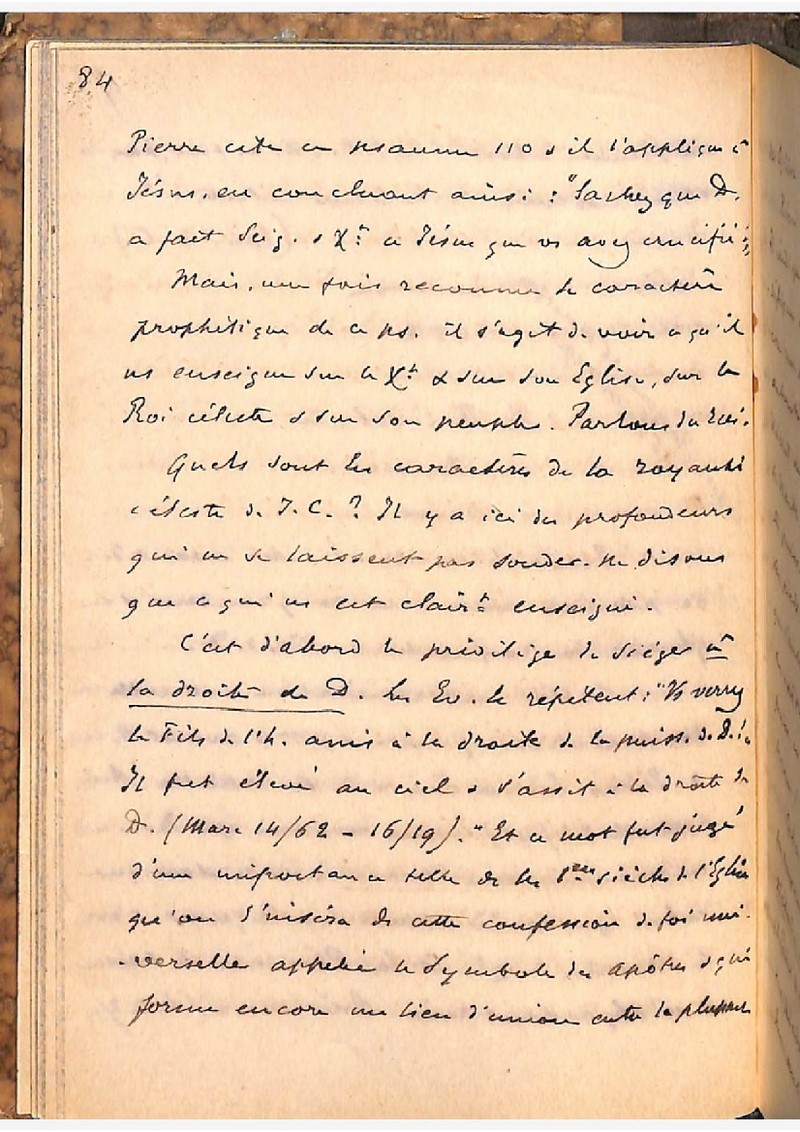 84
Pierre cite ce psaume 110 & il l'applique à
Jésus, en concluant ainsi : "Sachez que D.
a fait Seig. & Xt ce Jésus que vs avez crucifié".
Mais, une fois reconnu le caractère
prophétique de ce ps. il s'agit de voir ce qu'il
ns enseigne sur le Xt & sur son Eglise, sur le
Roi céleste & sur son peuple. Parlons du Roi.
Quels sont les caractères de la royauté
céleste de J.C.? Il y a ici des profondeurs
qui ne se laissent pas sonder. Ne disons
que ce qui ns est clairt enseigné.
C'est d'abord le privilège de siéger à
la droite de D. Les Ev. le répètent : "Vs verrez
le Fils de l'h. assis à la droite de la puiss. de D.
Il fut élevé au ciel & s'assit à la droite de
D. (Marc 14/62 - 16/19)." Et ce mot fut jugé
d'une importance telle ds les 1ers siècles de l'Eglise
qu'on l'inséra ds cette confession de foi uni-
-verselle appelée le Symbole des apôtres & qui
forme encore un lien d'union entre la plupart